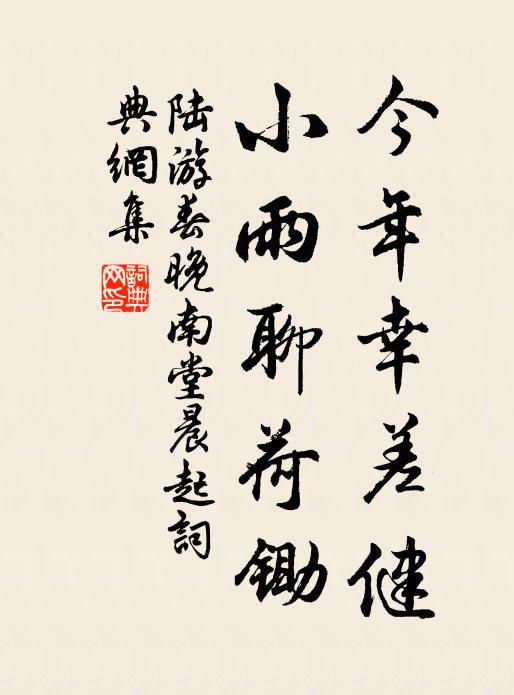 今年幸差健
小雨聊荷鋤
陆游春晚南堂晨起詞
典網集
詞典
网印